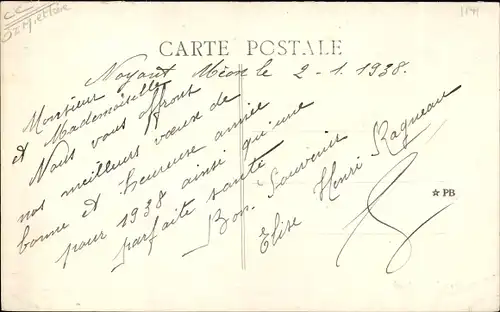 CARTE POSTALE
Noyant Méon le 2-1.1938.
Monsieur
et Mademoiselle
Nous vous offront
nos meilleurs vœux de
bonne et heureuse année
pour 1938 ainsi qu'une
parfaite santé
Bon Souvenir
Elise Henri Ragneau
☆ PB